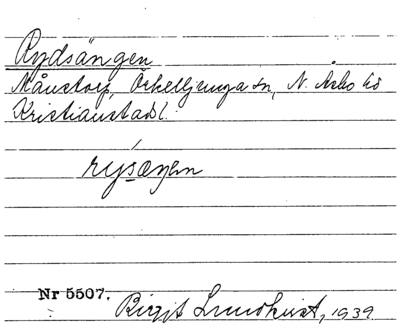 Rydsängen
Månstorp, Örkelljunga sn, N. Åsbo hd
Kristianstads l.
rýsæŋen
Nr 5507.
Birgit Lundkvist, 1939